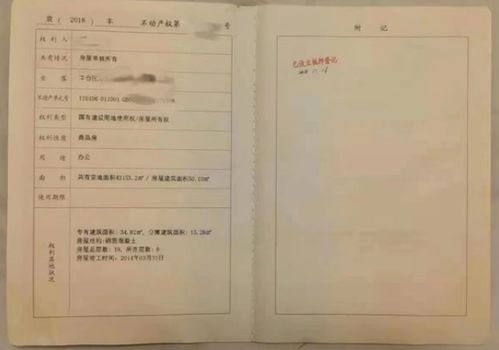 京 ( 2018 ) 丰 不动产权第 号
权利人
共有情况 房屋单独所有
坐落 丰台区
不动产单元号
权利类型 国有建设用地使用权/房屋所有权
权利性质 商品房
用途 办公
面积 共有宗地面积42153.2㎡/房屋建筑面积50.10㎡
使用期限
权利其他状况
专有建筑面积:34.82㎡,分摊建筑面积:15.28㎡
房屋结构:钢筋混凝土
房屋总层数:19,所在层数:8
房屋竣工时间:2014年03月31日
附记
已设立抵押登记